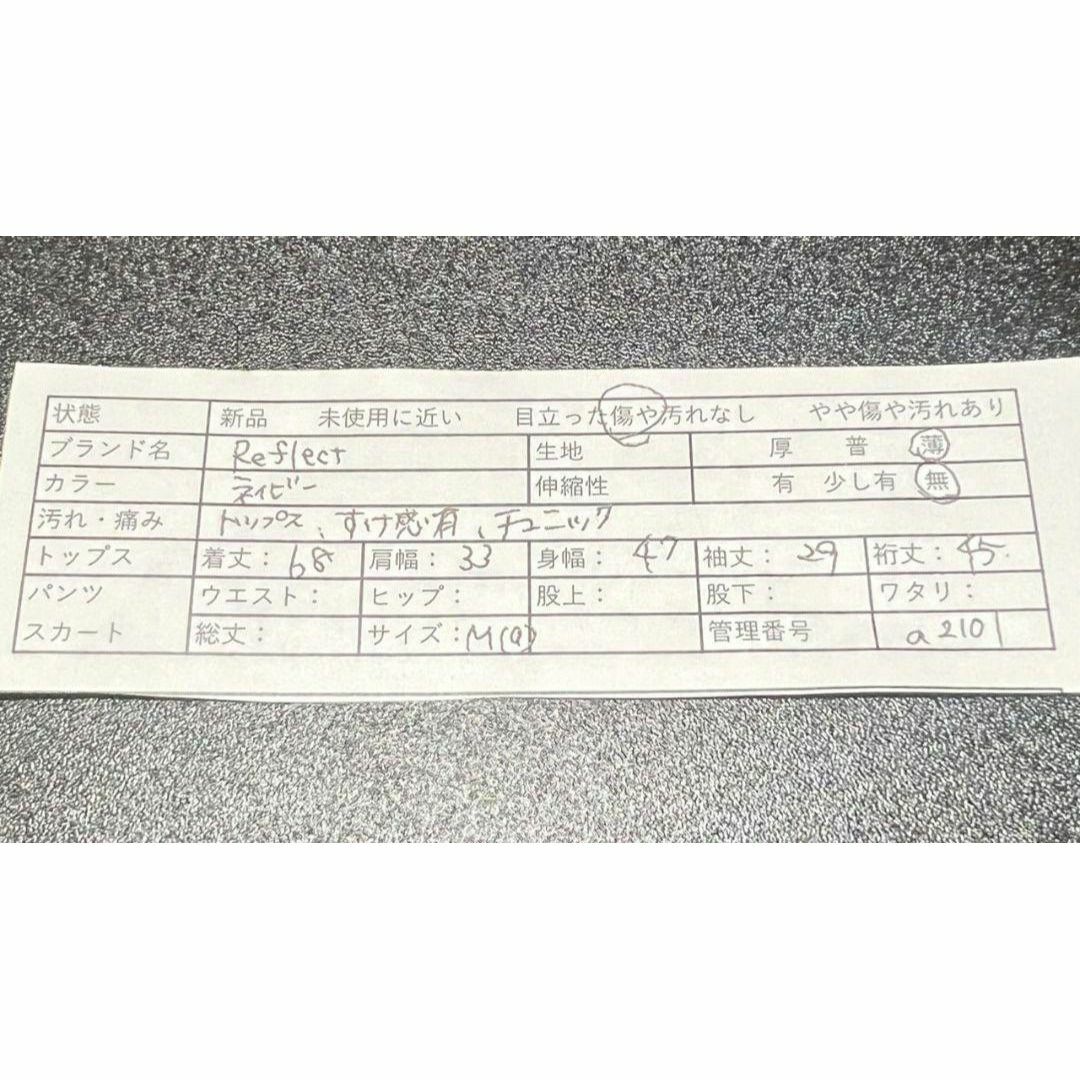 状態 新品 未使用に近い 目立った傷や汚れなし やや傷や汚れあり
ブランド名 Reflect 生地 厚 普 薄
カラー ネイビー 伸縮性 有 少し有 無
汚れ・痛み トップス、すけ感有、チュニック
トップス 着丈：68 肩幅：33 身幅：47 袖丈：29 裄丈：45
パンツ ウエスト： ヒップ： 股上： 股下： ワタリ：
スカート 総丈： サイズ：M(9) 管理番号 a2101